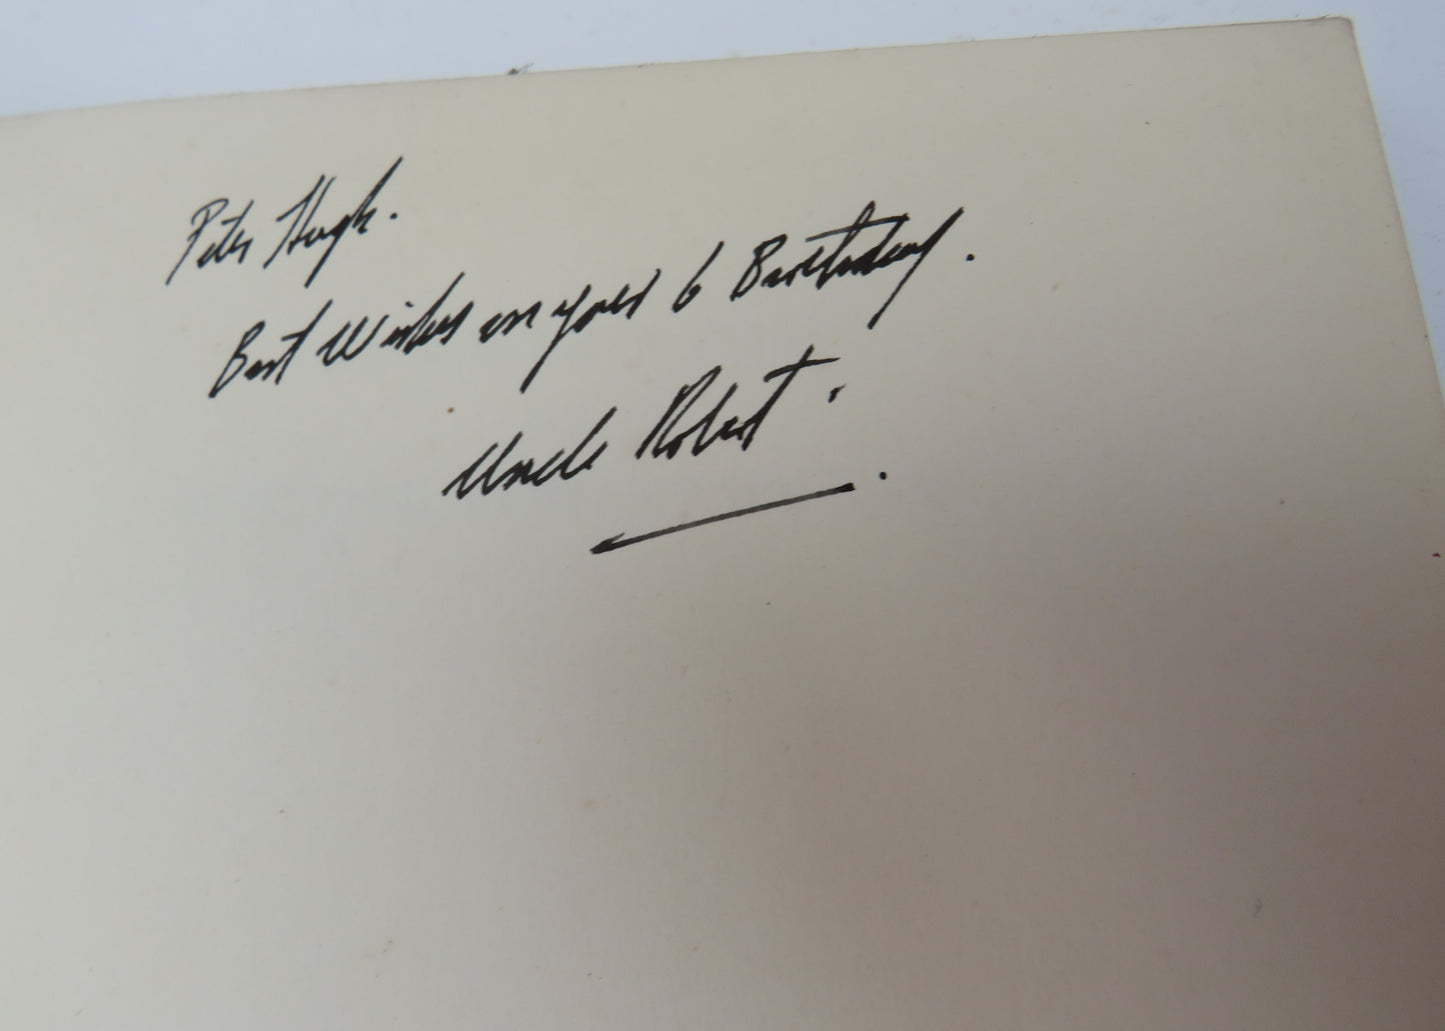 Peter Hugh.
Best Wishes on your 6 Birthday.
Uncle Robert.